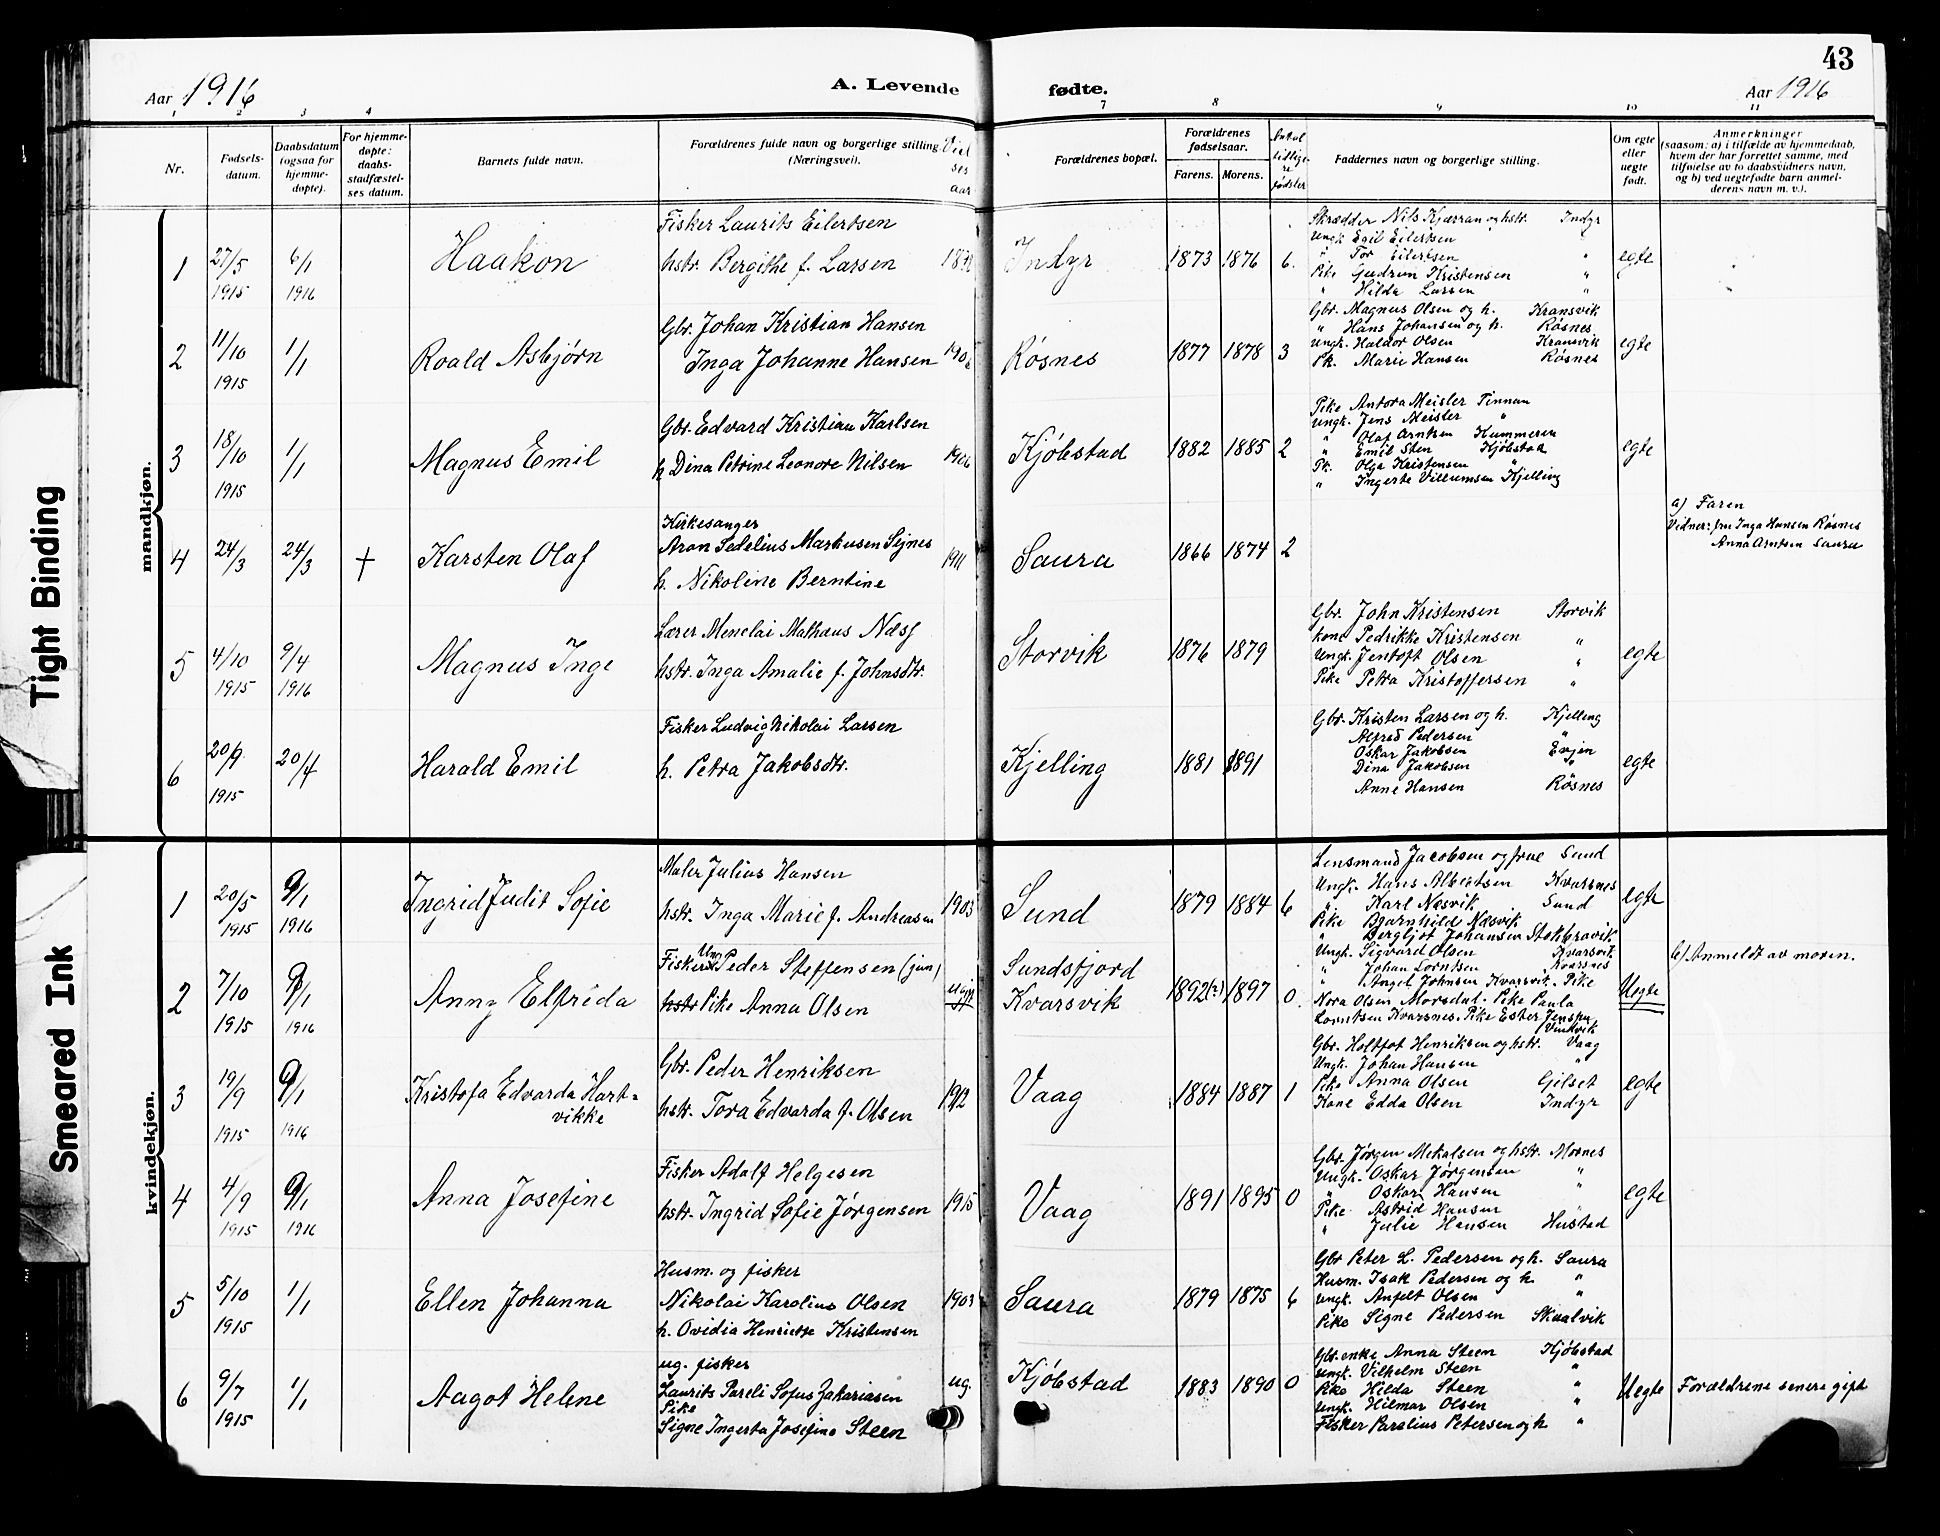 43
Aar 1916
A. Levende
fødte.
Aar 1916
1 2 3 4
7 8 9 10 11
Nr.
Fødsels-
datum.
Daabsdatum
(ogsaa for
hjemme-
døpte).
For hjemme-
døpte:
daabs-
stadfæstel-
ses datum.
Barnets fulde navn.
Forældrenes fulde navn og borgerlige stilling.
(Næringsvei).
Viel
ses
aar
Forældrenes bopæl.
Forældrenes
fødselsaar.
Farens.
Morens.
Antal
tidlige-
re
fødsler
Faddernes navn og borgerlige stilling.
Om egte
eller
uegte
født.
Anmerkninger
(saasom: a) i tilfælde av hjemmedaab,
hvem der har forrettet samme, med
tilføielse av to daabsvidners navn,
og b) ved uegtefødte barn anmel-
derens navn m. v.).
Tight Binding
Smeared Ink
mandkjøn.
1
27/5
1915
6/1
1916
Haakon
Fisker Laurits Eilertsen
hstr. Bergithe f. Larsen
Indyr
1873 1876 6.
Skrædder Nils Kjærran og hstr. Indyr
Ungk Egil Eilertsen "
" Tor Eilertsen "
Pike Gudrun Kristensen "
" Hilda Larsen "
egte
2
11/10
1915
1/1
Roald Asbjørn
Gbr. Johan Kristian Hansen
Inga Johanne Hansen
Røsnes
1877 1878 3
Gbr. Magnus Olsen og h. Kransvik
" Hans Johansen og h. Røsnes
Ungk. Haldor Olsen Kransvik
Pk. Marie Hansen Røsnes
egte
3
18/10
1915
1/1
Magnus Emil
Gbr. Edvard Kristian Karlsen
h Dina Petrine Leonore Nilsen
1906
Kjøbstad
1882 1885 2
Pike Antora Meisler Tinnan
Ungk. Jens Meisler "
" Olaf Arntsen
" Emil Sten Kjøbstad
Pk. Olga Kristensen "
" Ingerte Villumsen Kjelling
egte
4
24/3
24/3
†
Karsten Olaf
Kirkesanger
Aron Sedelius Markusen Sejnes
h. Nikoline Berntine
1911
Saura
1866 1874 2
a) Faren
Vidner: fru Inga Hansen Røsnes
Anna Arntsen Saura
5
4/10
1915
9/4
1916
Magnus Inge
Lærer Menelai Mathæus Næss
hstr. Inga Amalie f. Johnsdtr.
Storvik
1876 1879
Gbr. John Kristensen Storvik
kone Pedrikke Kristensen "
Ungk. Jentoft Olsen "
Pike Petra Kristoffersen "
egte
6
20/9
1915
20/4
Harald Emil
Fisker Ludvig Nikolai Larsen
h. Petra Jakobsdtr.
Kjelling
1881 1891
Gbr. Kristen Larsen og h. Kjelling
Alfred Pedersen "
Oskar Jakobsen Evjen
Dina Jakobsen "
Anne Hansen Røsnes
egte
kvindekjøn.
1
20/5
1915
9/1
1916
Ingrid Judit Sofie
Maler Julius Hansen
hstr. Inga Marie f. Andreasen
1903
Sund
1879 1884 6
Lensmand Jacobsen og frue Sund
Ungk. Hans Albertsen Kvarsnes
" Karl Næsvik Sund
Pike Bjarnhild Næsvik
" Bergljot Johansen
egte
2
7/10
1915
9/1
1916
Anna Elfrida
Fisker Ung Peder Steffensen (jun)
hstr Pike Anna Olsen
Ugift
Sundsfjord
Kvarsvik
1892(?) 1897 0
Ungk. Sigvard Olsen Kvarsvik
" Johan Lorntsen Kvarsnes
" Angel Johnsen Kvarsvik. Pike
Nora Olsen Morsdal. Pike Paula
Lorntsen Kvarsnes. Pike Ester Jensen
Uegte
b) Anmeldt av moren.
3
19/9
1915
9/1
1916
Kristofa Edvarda Hart-
vikke
Gbr. Peder Henriksen
hstr. Tora Edvarda f. Olsen
1912
Vaag
1884 1887 1
Gbr. Holtfot Henriksen og hstr. Vaag
Ungk. Johan Hansen "
Pike Anna Olsen Gilset
Kone Edda Olsen Indyr
egte
4
4/9
1915
9/1
1916
Anna Josefine
Fisker Adolf Helgesen
hstr. Ingrid Sofie Jørgensen
1915
Vaag
1891 1895 0
Gbr. Jørgen Mekalsen og hstr. Mornes
Ungk. Oskar Jørgensen "
" Oskar Hansen "
Pike Astrid Hansen "
" Julie Hansen Hustad
egte
5
5/10
1915
1/1
Ellen Johanna
Husm. og fisker
Nikolai Karolius Olsen
h. Ovidia Henriette Kristensen
1903
Saura
1879 1875 6
Gbr Peter L. Pedersen og h. Saura
Husm. Isak Pedersen og h. "
Ungk. Anfelt Olsen "
Pike Signe Pedersen Skaalvik
6
9/7
1915
1/1
Aagot Helene
ug. fisker
Laurits Pareli Sofus Zakariasen
Pike
Signe Ingerta Josefine Steen
ug.
Kjøbstad
1883 1890 0
Gbr. enke Anna Steen Kjøbstad
Ungk. Vilhelm Steen "
Pike Hilda Steen "
Ungk. Hilmar Olsen "
Fisker Parelius Petersen og h "
Uegte
Forældrene senere gift